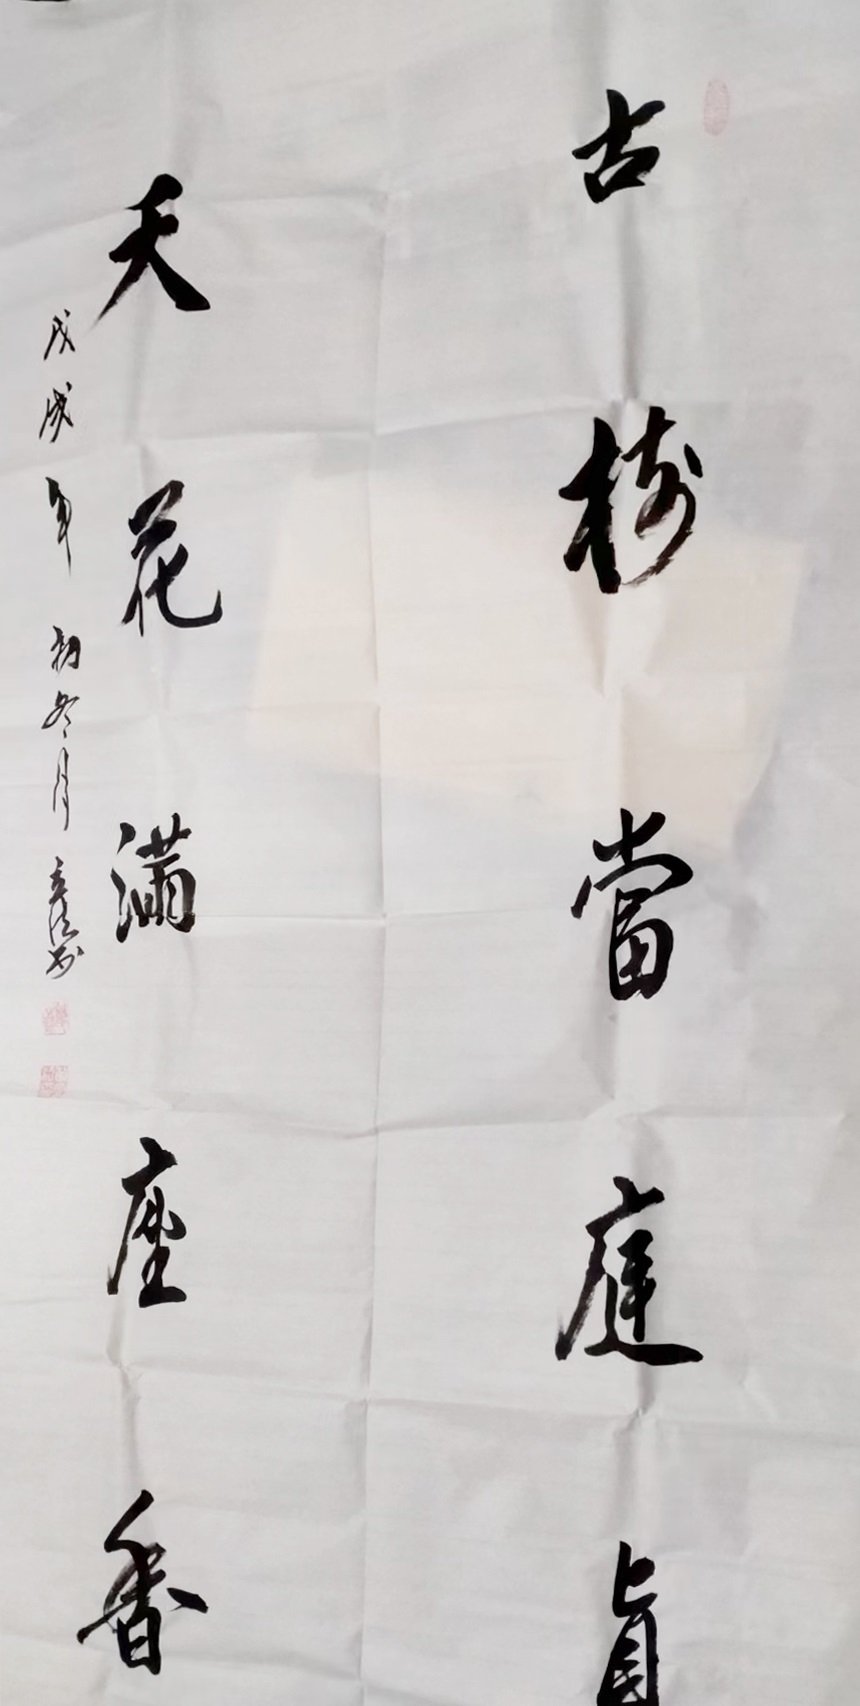 古樹當庭貞
天花滿座香
戊戌年初冬月